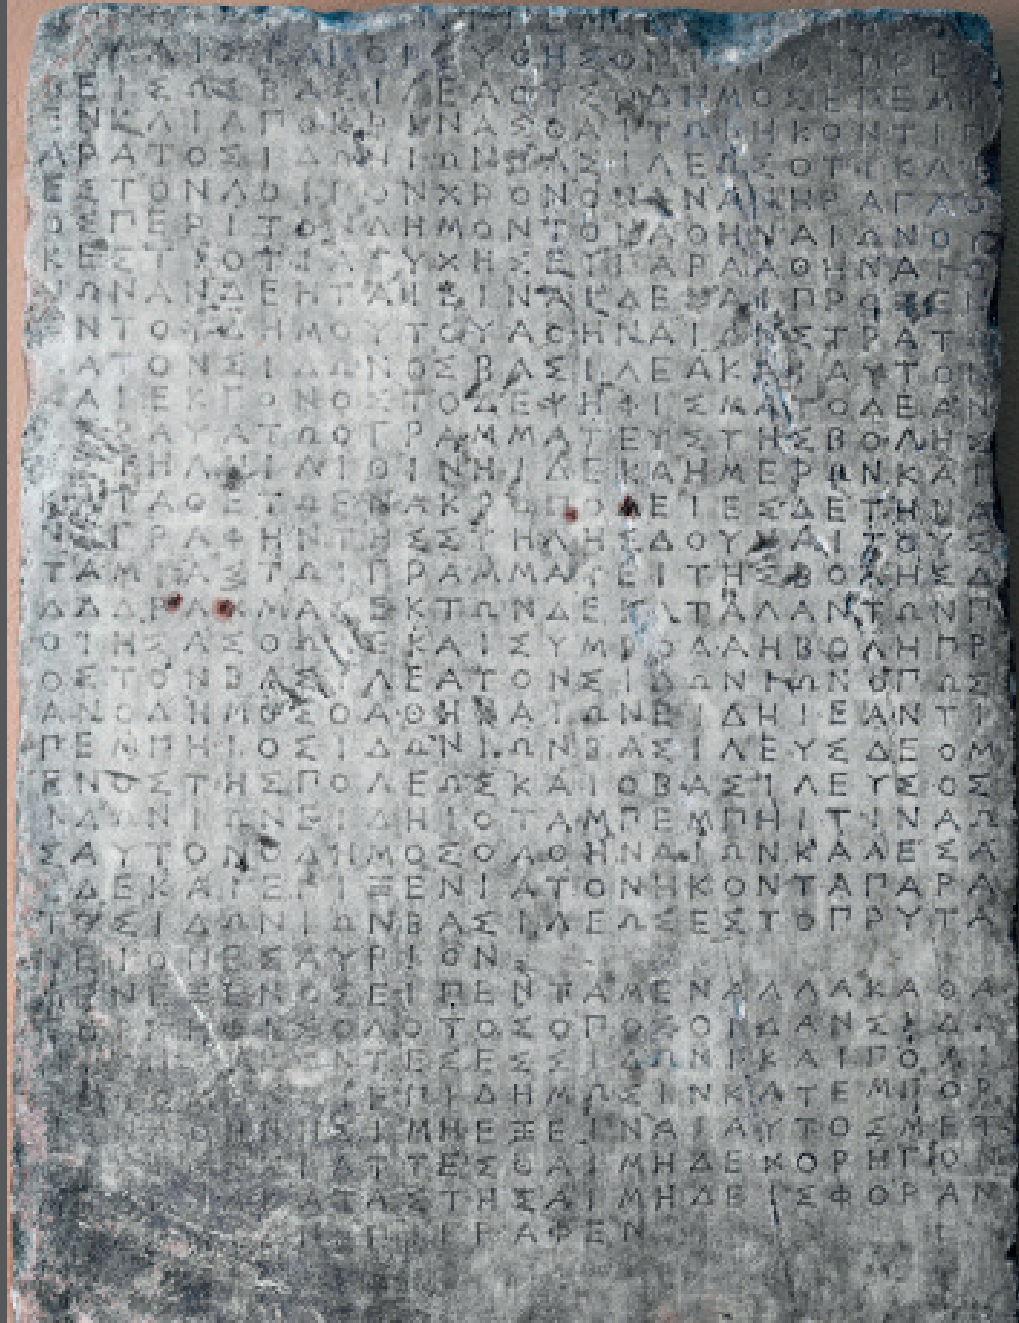 ΕΙΣΩΣΒΑΣΙΛΕΑΟΥΣΟΔΗΜΟΣΕΠΕΜ
ΚΑΙΑΠΟΚΡΙΝΑΣΘΑΙΤΩΙΗΚΟΝΤΙΠ
ΑΡΑΤΟΣΙΔΩΝΙΩΝΒΑΣΙΛΕΩΣΟΤΙΚΑΙ
ΕΣΤΟΝΛΟΙΠΟΝΧΡΟΝΟΝΩΝΑΝΗΡΑΓΑΘ
ΟΣΠΕΡΙΤΟΝΔΗΜΟΝΤΟΝΑΘΗΝΑΙΩΝΟ
ΚΕΣΤΙΟΤΙΑΤΥΧΗΣΕΙΠΑΡΑΑΘΗΝΑΙ
ΩΝΩΝΑΝΔΕΗΤΑΙΕΙΝΑΙΔΕΚΑΙΠΡΟΞΕ
ΝΟΝΤΟΥΔΗΜΟΥΤΟΥΑΘΗΝΑΙΩΝΣΤΡΑΤ
ΑΤΟΝΣΙΔΩΝΟΣΒΑΣΙΛΕΑΚΑΙΑΥΤΟΝ
ΑΙΕΚΓΟΝΟΣΤΟΔΕΨΗΦΙΣΜΑΤΟΔΕΑΝ
ΡΑΨΑΤΩΟΓΡΑΜΜΑΤΕΥΣΤΗΣΒΟΛΗΣ
ΗΛΗΙΛΙΘΙΝΗΙΔΕΚΑΗΜΕΡΩΝΚΑΙ
ΚΑΤΑΘΕΤΩΕΝΑΚΡΟΠΟΛΕΙΕΣΔΕΤΗΝΑ
ΓΡΑΦΗΝΤΗΣΣΤΗΛΗΣΔΟΥΝΑΙΤΟΥΣ
ΤΑΜΙΑΣΤΩΙΓΡΑΜΜΑΤΕΙΤΗΣΒΟΛΗΣΔ
ΔΔΔΡΑΧΜΑΣΕΚΤΩΝΔΕΚΑΤΑΛΑΝΤΩΝΠ
ΟΙΗΣΑΣΘΩΔΕΚΑΙΣΥΜΒΟΛΑΗΒΩΛΗΠΡ
ΟΣΤΟΝΒΑΣΙΛΕΑΤΟΝΣΙΔΩΝΙΩΝΟΠΩΣ
ΑΝΟΔΗΜΟΣΟΑΘΗΝΑΙΩΝΕΙΔΗΙΕΑΝΤΙ
ΠΕΜΠΗΙΟΣΙΔΩΝΙΩΝΒΑΣΙΛΕΥΣΔΕΟΜ
ΕΝΟΣΤΗΣΠΟΛΕΩΣΚΑΙΟΒΑΣΙΛΕΥΣΟΣ
ΙΔΩΝΙΩΝΕΙΔΗΙΟΤΑΜΠΕΜΠΗΙΤΙΝΑΩ
ΣΑΥΤΟΝΟΔΗΜΟΣΟΑΘΗΝΑΙΩΝΚΑΛΕΣΑ
ΙΔΕΚΑΙΕΠΙΞΕΝΙΑΤΟΝΗΚΟΝΤΑΠΑΡΑ
ΤΟΣΙΔΩΝΙΩΝΒΑΣΙΛΕΩΣΕΣΤΟΠΡΥΤΑ
ΝΕΙΟΝΕΣΑΥΡΙΟΝ
ΜΕΝΕΞΕΝΟΣΕΙΠΕΝΤΑΜΕΝΑΛΛΑΚΑΘΑ
ΠΕΡΚΗΦΙΣΟΔΟΤΟΣΟΠΟΣΟΙΔΑΝΣΙΔΩ
ΝΤΕΣΕΣΣΙΔΩΝΙΚΑΙΠΟΛΙ
ΕΠΙΔΗΜΩΣΙΝΚΑΤΕΜΠΟΡ
ΑΘΗΝΗΣΙΜΗΕΞΕΙΝΑΙΑΥΤΟΣΜΕΤ
ΑΤΤΕΣΘΑΙΜΗΔΕΧΟΡΗΓΟΝ
ΚΑΤΑΣΤΗΣΑΙΜΗΔΕΙΣΦΟΡΑΝ
ΓΡΑΦΕΝ